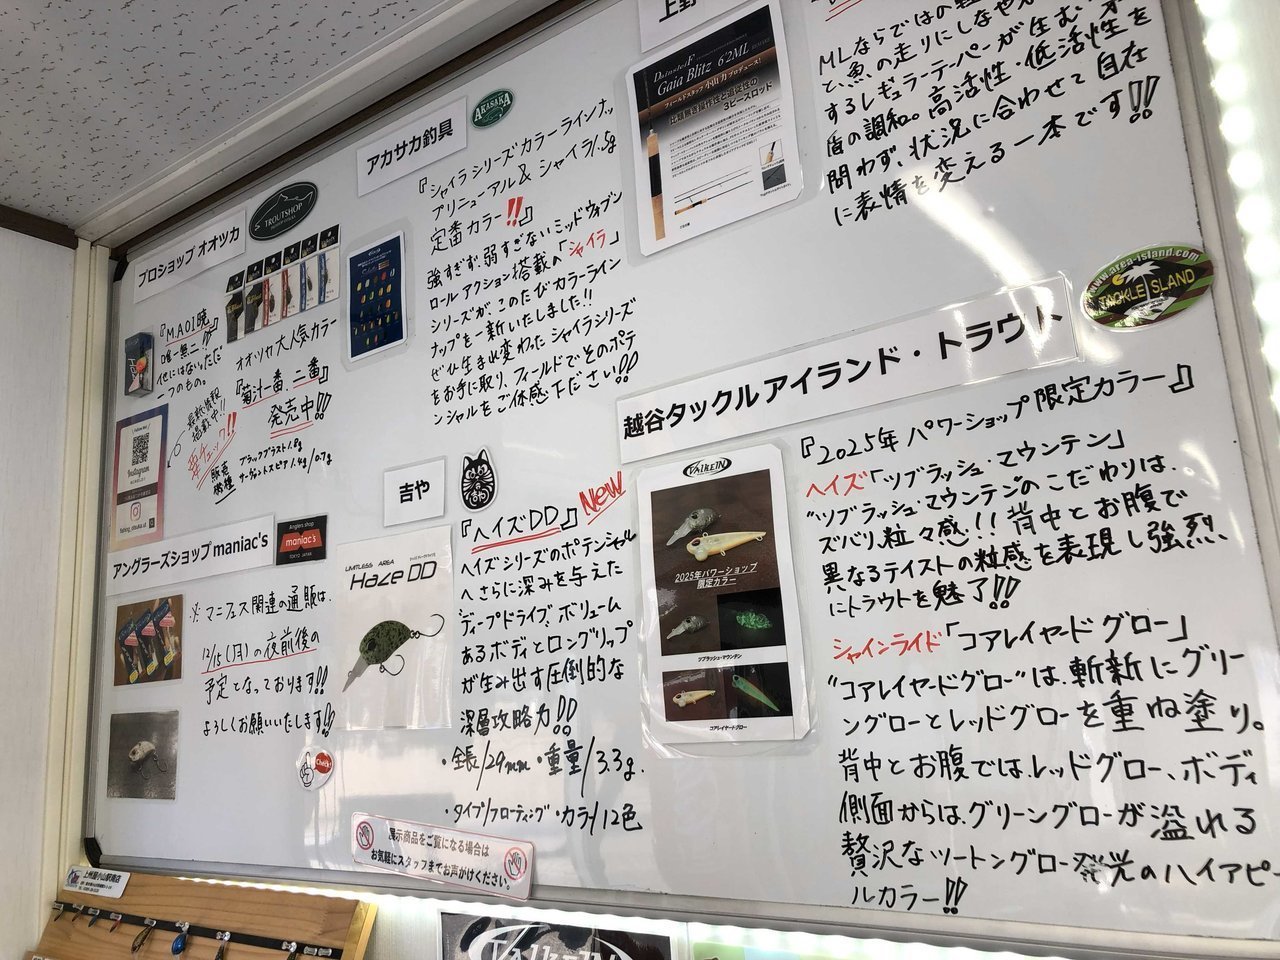 プロショップ オオツカ
TROUTSHOP
『MAOI暁』
唯一無二!!
他にはない、ただ
一つのもの。
最新情報
掲載中!!
要チェック!!
Instagram
オオツカ大人気カラー
『菊汁一番、二番』
発売中!!
販売機種
ブラックブラスト1.8g
アカサカ釣具
AKASAKA
『シャイラシリーズカラーラインナッ
プリニューアル & シャイラ1.5g
定番カラー!!』
強すぎず、弱すぎないミッドウォブン
ロールアクション搭載の「シャイラ」
シリーズが、このたびカラーライン
ナップを一新いたしました!!
ぜひ生まれ変わったシャイラシリーズ
をお手に取り、フィールドでそのポテ
ンシャルをご体感下ださい!!
上野
DaysprouT
Gaia Blitz 62ML
フィールドスタッフ小山力プロデュース!
3ピースロッド
MLならではの
と、魚の走りにしなやか
するレギュラーテーパーが生む、矛
盾の調和。高活性・低活性を
問わず、状況に合わせて自在
に表情を変える一本です!!
アングラーズショップmaniac's
Anglers shop
maniac's
TOKYO JAPAN
※マニフェス関連の通販は、
12/15(月)の夜前後の
予定となっております!!
よろしくお願いいたします!!
Check!
吉や
吉や
LIMITLESS AREA
HAZE DD
『ヘイズDD』 New
ヘイズシリーズのポテンシャル
へさらに深みを与えた
ディープドライブ、ボリューム
あるボディとロングリップ
が生み出す圧倒的な
深層攻略力!!
・全長/29mm ・重量/3.3g.
・タイプ/フローティング ・カラー/12色
越谷タックルアイランド・トラウト
www.area-island.com
TACKLE ISLAND
ValkeIN
2025年パワーショップ
限定カラー
ツブラッシュ・マウンテン
コアレイヤードグロー
『2025年 パワーショップ 限定カラー』
ヘイズ「ツブラッシュ・マウンテン」
"ツブラッシュ・マウンテン"のこだわりは、
ズバリ、粒々感!! 背中とお腹で
異なるテイストの粒感を表現し強烈、
にトラウトを魅了!!
シャインライド「コアレイヤードグロー」
"コアレイヤードグロー"は、斬新にグリー
ングローとレッドグローを重ね塗り。
背中とお腹では、レッドグロー、ボディ
側面からは、グリーングローが溢れる
贅沢なツートングロー発光のハイアピー
ルカラー!!
展示商品をご覧になる場合は
お気軽にスタッフまでお声かけください。
上州屋小山駅南店
ValkeIN